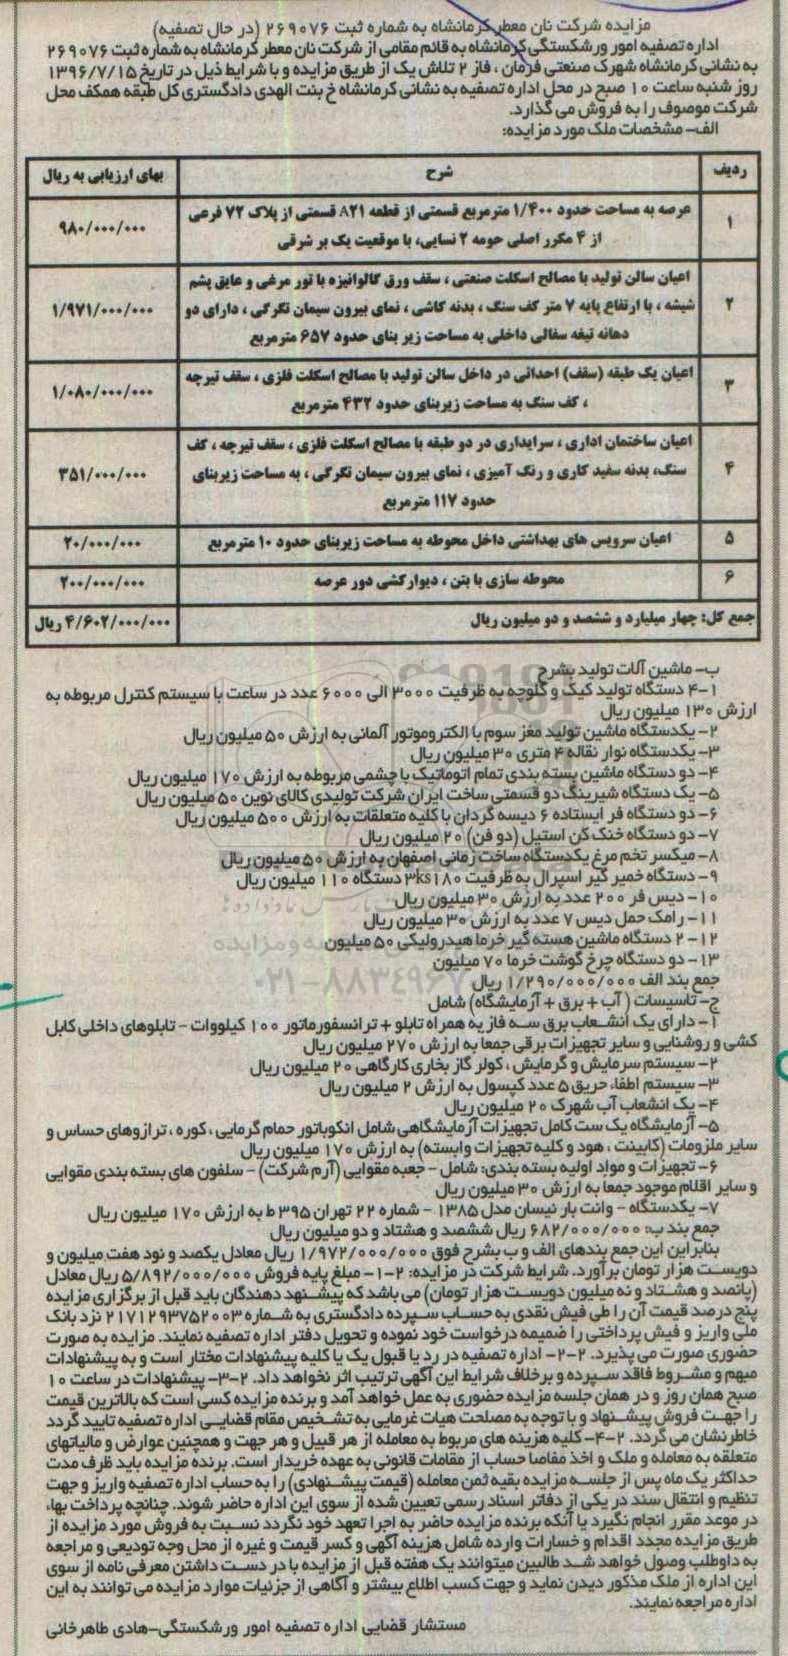 مزایده شرکت نان معطر کرمانشاه به شماره ثبت ۲۶۹۰۷۶ (در حال تصفیه)
اداره تصفیه امور ورشکستگی کرمانشاه به قائم مقامی از شرکت نان معطر کرمانشاه به شماره ثبت ۲۶۹۰۷۶
به نشانی کرمانشاه شهرک صنعتی فرمان ، فاز ۲ تلاش یک از طریق مزایده و با شرایط ذیل در تاریخ ۱۳۹۶/۷/۱۵
روز شنبه ساعت ۱۰ صبح در محل اداره تصفیه به نشانی کرمانشاه خ بنت الهدی دادگستری کل طبقه همکف محل
شرکت موصوف را به فروش می گذارد.
الف- مشخصات ملک مورد مزایده:
ردیف شرح بهای ارزیابی به ریال
۱ عرصه به مساحت حدود ۱/۴۰۰ مترمربع قسمتی از قطعه ۸۲۱ قسمتی از پلاک ۷۲ فرعی
از ۴ مکرر اصلی حومه ۲ نسایی، با موقعیت یک بر شرقی ۹۸۰/۰۰۰/۰۰۰
اعیان سالن تولید با مصالح اسکلت صنعتی ، سقف ورق گالوانیزه با تور مرغی و عایق پشم
۲ شیشه ، با ارتفاع پایه ۷ متر کف سنگ ، بدنه کاشی ، نمای بیرون سیمان تگرگی ، دارای دو ۱/۹۷۱/۰۰۰/۰۰۰
دهانه تیغه سفالی داخلی به مساحت زیر بنای حدود ۶۵۷ مترمربع
۳ اعیان یک طبقه (سقف) احداثی در داخل سالن تولید با مصالح اسکلت فلزی ، سقف تیرچه
، کف سنگ به مساحت زیربنای حدود ۴۳۲ مترمربع ۱/۰۸۰/۰۰۰/۰۰۰
اعیان ساختمان اداری ، سرایداری در دو طبقه با مصالح اسکلت فلزی ، سقف تیرچه ، کف
۴ سنگ، بدنه سفید کاری و رنگ آمیزی ، نمای بیرون سیمان تگرگی ، به مساحت زیربنای ۳۵۱/۰۰۰/۰۰۰
حدود ۱۱۷ مترمربع
۵ اعیان سرویس های بهداشتی داخل محوطه به مساحت زیربنای حدود ۱۰ مترمربع ۲۰/۰۰۰/۰۰۰
۶ محوطه سازی با بتن ، دیوارکشی دور عرصه ۲۰۰/۰۰۰/۰۰۰
جمع کل: چهار میلیارد و ششصد و دو میلیون ریال ۴/۶۰۲/۰۰۰/۰۰۰ ریال
ب- ماشین آلات تولید بشرح
۱-۴ دستگاه تولید کیک و کلوچه به ظرفیت ۳۰۰۰ الی ۶۰۰۰ عدد در ساعت با سیستم کنترل مربوطه به
ارزش ۱۳۰ میلیون ریال
۲- یکدستگاه ماشین تولید مغز سوم با الکتروموتور آلمانی به ارزش ۵۰ میلیون ریال
۳- یکدستگاه نوار نقاله ۴ متری ۳۰ میلیون ریال
۴- دو دستگاه ماشین بسته بندی تمام اتوماتیک با چشمی مربوطه به ارزش ۱۷۰ میلیون ریال
۵- یک دستگاه شیرینگ دو قسمتی ساخت ایران شرکت تولیدی کالای نوین ۵۰ میلیون ریال
۶- دو دستگاه فر ایستاده ۶ دیسه گردان با کلیه متعلقات به ارزش ۵۰۰ میلیون ریال
۷- دو دستگاه خنک کن استیل (دو فن) ۲۰ میلیون ریال
۸- میکسر تخم مرغ یکدستگاه ساخت زمانی اصفهان به ارزش ۵۰ میلیون ریال
۹- دستگاه خمیر گیر اسپرال به ظرفیت ۳ks۱۸۰ دستگاه ۱۱۰ میلیون ریال
۱۰- دیس فر ۲۰۰ عدد به ارزش ۳۰ میلیون ریال
۱۱- رامک حمل دیس ۷ عدد به ارزش ۳۰ میلیون ریال
۱۲- ۲ دستگاه ماشین هسته گیر خرما هیدرولیکی ۵۰ میلیون
۱۳- دو دستگاه چرخ گوشت خرما ۷۰ میلیون
جمع بند الف ۱/۲۹۰/۰۰۰/۰۰۰ ریال
ج- تاسیسات ( آب + برق + آزمایشگاه) شامل
۱- دارای یک انشعاب برق سه فاز به همراه تابلو + ترانسفورماتور ۱۰۰ کیلووات - تابلوهای داخلی کابل
کشی و روشنایی و سایر تجهیزات برقی جمعا به ارزش ۲۷۰ میلیون ریال
۲- سیستم سرمایش و گرمایش ، کولر گاز بخاری کارگاهی ۲۰ میلیون ریال
۳- سیستم اطفاء حریق ۵ عدد کپسول به ارزش ۲ میلیون ریال
۴- یک انشعاب آب شهرک ۲۰ میلیون ریال
۵- آزمایشگاه یک ست کامل تجهیزات آزمایشگاهی شامل انکوباتور حمام گرمایی ، کوره ، ترازوهای حساس و
سایر ملزومات (کابینت ، هود و کلیه تجهیزات وابسته) به ارزش ۱۷۰ میلیون ریال
۶- تجهیزات و مواد اولیه بسته بندی: شامل - جعبه مقوایی (آرم شرکت) - سلفون های بسته بندی مقوایی
و سایر اقلام موجود جمعا به ارزش ۳۰ میلیون ریال
۷- یکدستگاه - وانت بار نیسان مدل ۱۳۸۵ - شماره ۲۲ تهران ۳۹۵ ط به ارزش ۱۷۰ میلیون ریال
جمع بند ب: ۶۸۲/۰۰۰/۰۰۰ ریال ششصد و هشتاد و دو میلیون ریال
بنابراین این جمع بندهای الف و ب بشرح فوق ۱/۹۷۲/۰۰۰/۰۰۰ ریال معادل یکصد و نود هفت میلیون و
دویست هزار تومان برآورد. شرایط شرکت در مزایده: ۲-۱- مبلغ پایه فروش ۵/۸۹۲/۰۰۰/۰۰۰ ریال معادل
(پانصد و هشتاد و نه میلیون دویست هزار تومان) می باشد که پیشنهد دهندگان باید قبل از برگزاری مزایده
پنج درصد قیمت آن را طی فیش نقدی به حساب سپرده دادگستری به شماره ۲۱۷۱۲۹۳۷۵۲۰۰۳ نزد بانک
ملی واریز و فیش پرداختی را ضمیمه درخواست خود نموده و تحویل دفتر اداره تصفیه نمایند. مزایده به صورت
حضوری صورت می پذیرد. ۲-۲- اداره تصفیه در رد یا قبول یک یا کلیه پیشنهادات مختار است و به پیشنهادات
مبهم و مشروط فاقد سپرده و برخلاف شرایط این آگهی ترتیب اثر نخواهد داد. ۲-۳- پیشنهادات در ساعت ۱۰
صبح همان روز و در همان جلسه مزایده حضوری به عمل خواهد آمد و برنده مزایده کسی است که بالاترین قیمت
را جهت فروش پیشنهاد و با توجه به مصلحت هیات غرمایی به تشخیص مقام قضایی اداره تصفیه تایید گردد
خاطرنشان می گردد. ۲-۴- کلیه هزینه های مربوط به معامله از هر قبیل و هر جهت و همچنین عوارض و مالیاتهای
متعلقه به معامله و ملک و اخذ مفاصا حساب از مقامات قانونی به عهده خریدار است. برنده مزایده باید ظرف مدت
حداکثر یک ماه پس از جلسه مزایده بقیه ثمن معامله (قیمت پیشنهادی) را به حساب اداره تصفیه واریز و جهت
تنظیم و انتقال سند در یکی از دفاتر اسناد رسمی تعیین شده از سوی این اداره حاضر شوند. چنانچه پرداخت بهاء
در موعد مقرر انجام نگیرد یا آنکه برنده مزایده حاضر به اجرا تعهد خود نگردد نسبت به فروش مورد مزایده از
طریق مزایده مجدد اقدام و خسارات وارده شامل هزینه آگهی و کسر قیمت و غیره از محل وجه تودیعی و مراجعه
به داوطلب وصول خواهد شد طالبین میتوانند یک هفته قبل از مزایده با در دست داشتن معرفی نامه از سوی
این اداره از ملک مذکور دیدن نماید و جهت کسب اطلاع بیشتر و آگاهی از جزئیات موارد مزایده می توانند به این
اداره مراجعه نمایند.
مستشار قضایی اداره تصفیه امور ورشکستگی-هادی طاهرخانی